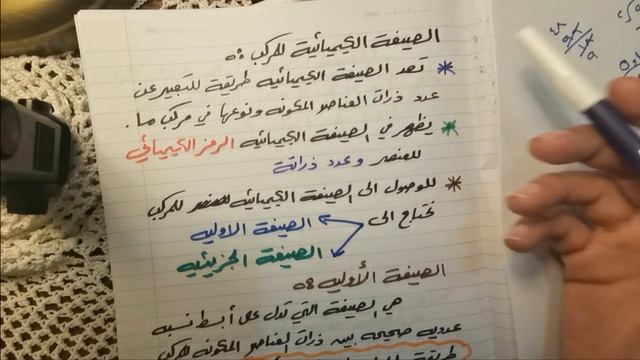 الصيغة الكيميائية للمركب :
* تعد الصيغة الكيميائيه طريقة للتعبير عن
عدد ذرات العناصر المكونه ونوعها في مركب ما .
* يظهر في الصيغة الكيميائيه الرمز الكيميائي
للعنصر وعدد ذراتة
* للوصول الى الصيغة الكيميائيه للمركب
نحتاج الى
الصيغة الاوليه
الصيغة الجزيئيه
الصيغة الأوليه :
هي الصيغة التي تدل على أبسط نسبه
عدديه صحيحه بين ذرات العناصر المكونه للمركب